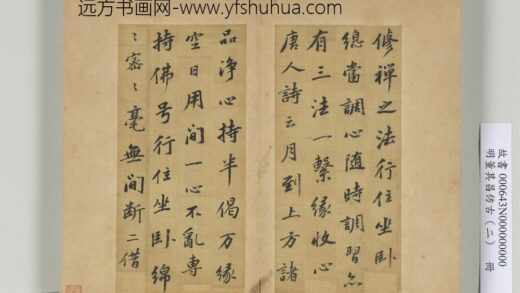 远方书画网-www.yfshuhua.com
修禪之法行住坐卧
總當調心隨時調習亦
有三法一繫緣收心
唐人詩云月到上方諸
品淨心持半偈萬緣
空日用間一心不亂專
持佛号行住坐卧綿
〻密〻毫無間斷二借
故書 000643N000000000
明董其昌仿古(二) 冊